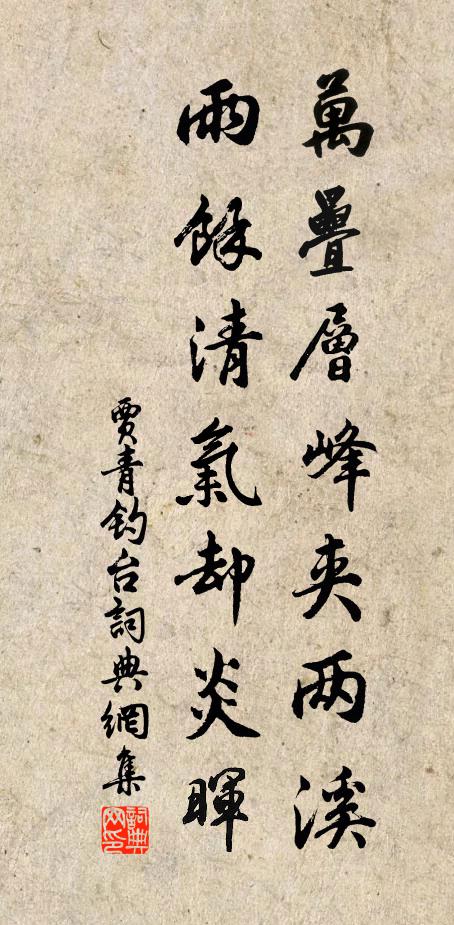 萬疊層峰夾两溪
雨餘清氣却炎暉
賈青釣台詞典網集
詞典网印